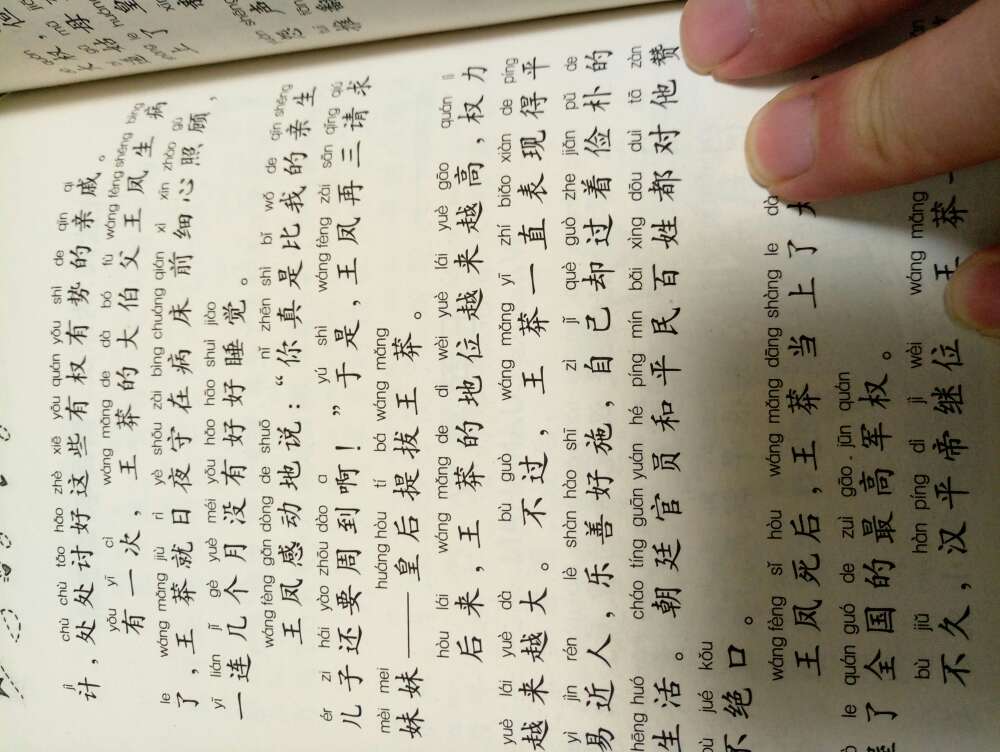 jì chù chù tǎo hǎo zhè xiē yǒu quán yǒu shì de qīn qi
计，处处讨好这些有权有势的亲戚。
yǒu yī cì wáng mǎng de dà bó fù wáng fèng shēng bìng
有一次，王莽的大伯父王凤生病
le wáng mǎng jiù rì yè shǒu zài bìng chuáng qián xì xīn zhào gù
了，王莽就日夜守在病床前细心照顾，
yī lián jǐ gè yuè méi yǒu hǎo hǎo shuì jiào
一连几个月没有好好睡觉。
wáng fèng gǎn dòng de shuō nǐ zhēn shì bǐ wǒ de qīn shēng
王凤感动地说：“你真是比我的亲生
ér zi hái yào zhōu dào a yú shì wáng fèng zài sān qǐng qiú
儿子还要周到啊！”于是，王凤再三请求
mèi mei huáng hòu tí bá wáng mǎng
妹妹——皇后提拔王莽。
hòu lái wáng mǎng de dì wèi yuè lái yuè gāo quán lì
后来，王莽的地位越来越高，权力
yuè lái yuè dà bù guò wáng mǎng yī zhí biǎo xiàn de píng
越来越大。不过，王莽一直表现得平
yì jìn rén lè shàn hào shī zì jǐ què guò zhe jiǎn pǔ de
易近人，乐善好施，自己却过着俭朴的
shēng huó cháo tíng guān yuán hé píng mín bǎi xìng dōu duì tā zàn
生活。朝廷官员和平民百姓都对他赞
bù jué kǒu
不绝口。
wáng fèng sǐ hòu wáng mǎng dāng shàng le dà
王凤死后，王莽当上了
le quán guó de zuì gāo jūn quán
了全国的最高军权。
bù jiǔ hàn píng dì jì wèi wáng mǎng
不久，汉平帝继位 王莽一